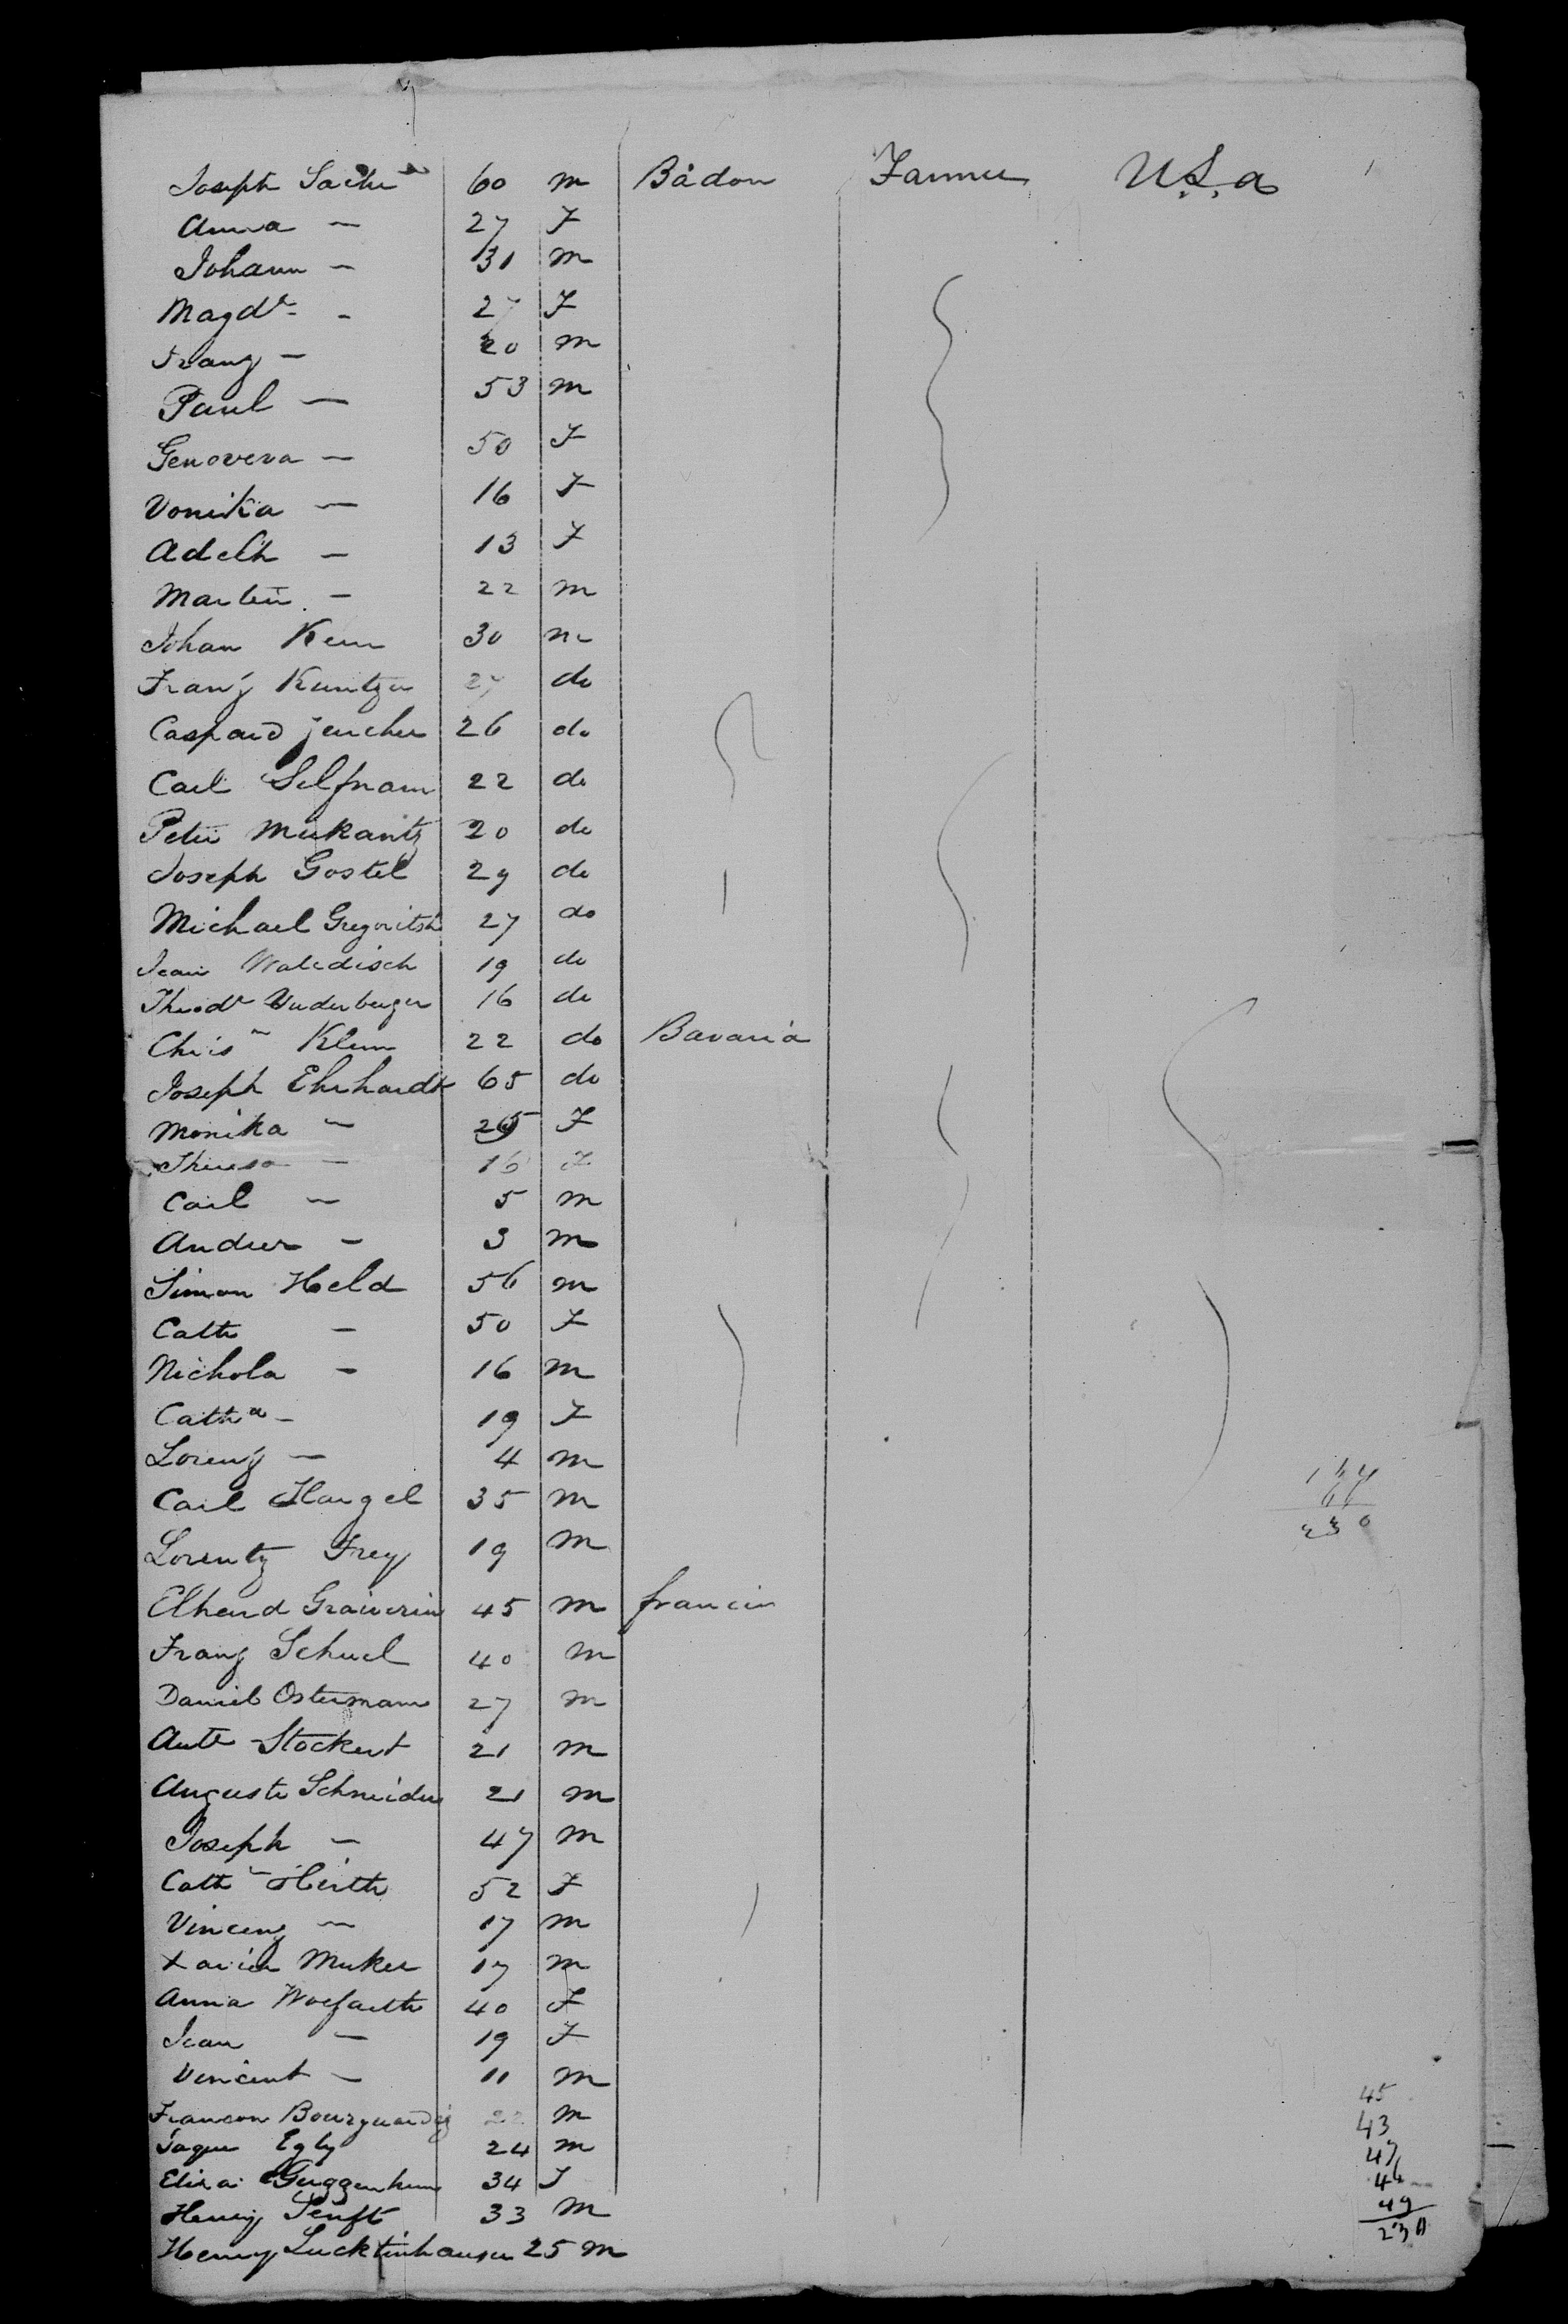 Joseph Sacher 60 m Bâdon Farmer U.S.a
Anna — 27 F
Johann — 31 m
Magdᵃ - 27 F
Franz — 20 m
Paul — 53 m
Genoveva — 50 F
Vonika — 16 F
Adelh — 13 F
Martin — 22 m
Johan Kern 30 m
Franz Kuntzer 27 do
Caspard Jencher 26 do
Carl Selfnam 22 do
Peter Mukantz 20 do
Joseph Gostel 29 do
Michael Gregoritsh 27 do
Jean Waledisch 19 do
Theodʳ Vuderberger 16 do
Chrisⁿ Klem 22 do Bavaria
Joseph Ehrhardt 65 do
Monika — 25 F
Theresa — 16 F
Carl — 5 m
Andrer — 3 m
Simon Held 56 m
Cath — 50 F
Nichola — 16 m
Cathᵃ — 19 F
Lorenz — 4 m
Carl Hangel 35 m
Lorentz Frey 19 m
Elhard 45 m francin
Franz Schuel 40 m
Daniel Ostermann 27 m
Antᵉ Stockert 21 m
Auguste Schneider 21 m
Joseph — 47 m
Cath Hirth 52 F
Vincenz — 17 m
Xavier Muker 17 m
Anna Woefarth 40 F
Jean — 19 F
Vincent — 11 m
Francon 22 m
Jaque Egly 24 m
Eliza Guggenheim 34 F
Henry Senft 33 m
Henry Lucktinhauser 25 m
230
45
43
47
46
49
230